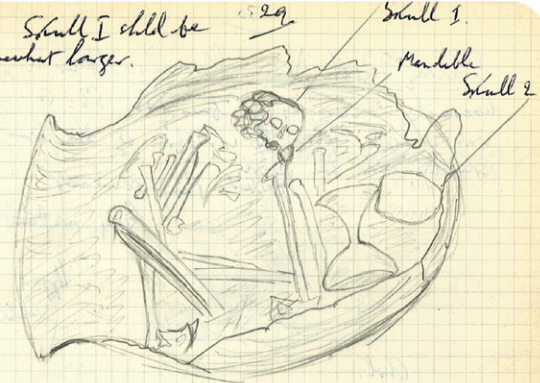 29.
Skull I shld be
somewhat larger.
Skull I.
Mandible
Skull 2